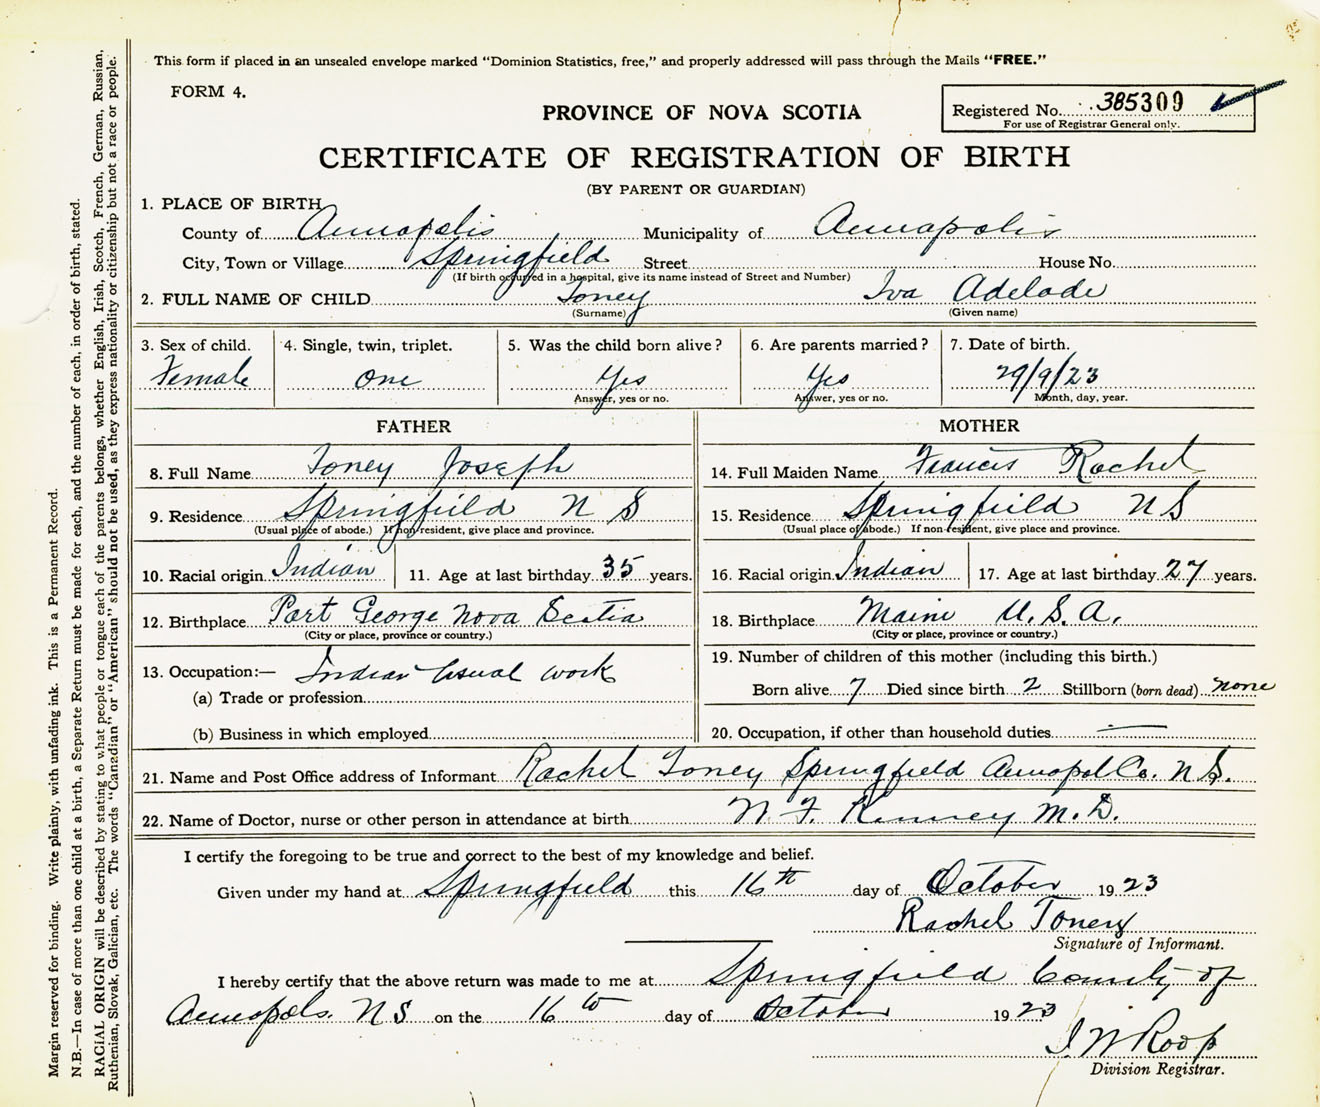 This form if placed in an unsealed envelope marked "Dominion Statistics, free," and properly addressed will pass through the Mails "FREE."
FORM 4.
Registered No. 385309
For use of Registrar General only.
PROVINCE OF NOVA SCOTIA
CERTIFICATE OF REGISTRATION OF BIRTH
(BY PARENT OR GUARDIAN)
1. PLACE OF BIRTH
County of Annapolis Municipality of Annapolis
City, Town or Village Springfield Street House No.
(If birth occurred in a hospital, give its name instead of Street and Number)
2. FULL NAME OF CHILD Toney Iva Adelade
(Surname) (Given name)
3. Sex of child. 4. Single, twin, triplet. 5. Was the child born alive? 6. Are parents married? 7. Date of birth.
Female one Yes Yes 29/9/23
Answer, yes or no. Answer, yes or no. Month, day, year.
FATHER MOTHER
8. Full Name Toney Joseph 14. Full Maiden Name Francis Rachel
9. Residence Springfield N S 15. Residence Springfield N S
(Usual place of abode.) If non-resident, give place and province. (Usual place of abode.) If non-resident, give place and province.
10. Racial origin Indian 11. Age at last birthday 35 years. 16. Racial origin Indian 17. Age at last birthday 27 years.
12. Birthplace Port George Nova Scotia 18. Birthplace Maine U.S.A.
(City or place, province or country.) (City or place, province or country.)
13. Occupation:— Indian usual work
19. Number of children of this mother (including this birth.)
(a) Trade or profession
Born alive 7 Died since birth 2 Stillborn (born dead) none
(b) Business in which employed
20. Occupation, if other than household duties —
21. Name and Post Office address of Informant Rachel Toney Springfield Annapol Co. N S.
22. Name of Doctor, nurse or other person in attendance at birth M.D.
I certify the foregoing to be true and correct to the best of my knowledge and belief.
Given under my hand at Springfield this 16th day of October 1923
Rachel Toney
Signature of Informant.
I hereby certify that the above return was made to me at Springfield County of
Annapols. N S on the 16 th day of October 1923
I W Roop
Division Registrar.
Margin reserved for binding. Write plainly, with unfading ink. This is a Permanent Record.
N.B.—In case of more than one child at a birth, a Separate Return must be made for each, and the number of each, in order of birth, stated.
RACIAL ORIGIN will be described by stating to what people or tongue each of the parents belongs, whether English, Irish, Scotch, French, German, Russian,
Ruthenian, Slovak, Galician, etc. The words "Canadian" or "American" should not be used, as they express nationality or citizenship but not a race or people.